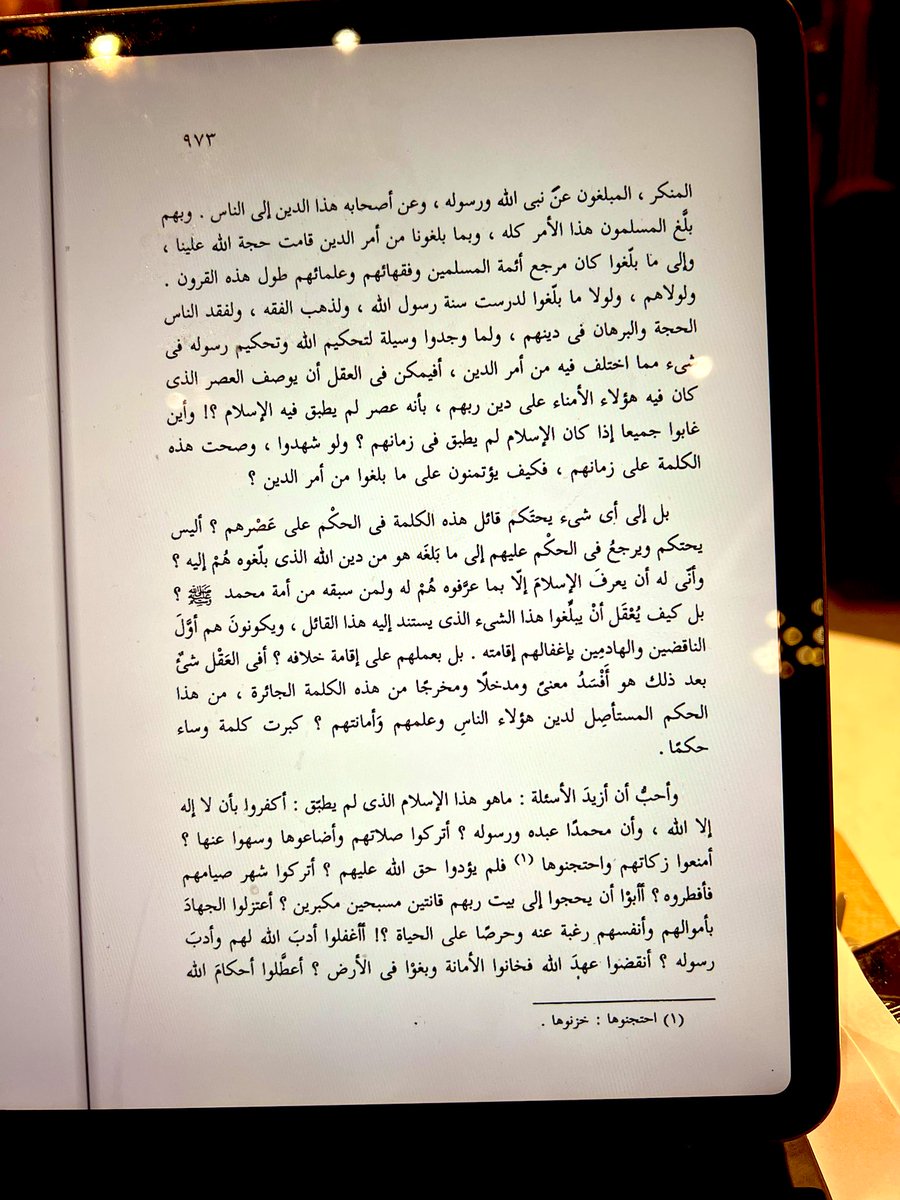 ٩٧٣
المنكر ، المبلغون عنْ نبى الله ورسوله ، وعن أصحابه هذا الدين إلى الناس . وبهم
بلَّغ المسلمون هذا الأمر كله ، وبما بلغونا من أمر الدين قامت حجة الله علينا ،
وإلى ما بلّغوا كان مرجع أئمة المسلمين وفقهائهم وعلمائهم طول هذه القرون .
ولولاهم ، ولولا ما بلّغوا لدرست سنة رسول الله ، ولذهب الفقه ، ولفقد الناس
الحجة والبرهان فى دينهم ، ولما وجدوا وسيلة لتحكيم الله وتحكيم رسوله فى
شىء مما اختلف فيه من أمر الدين ، أفيمكن فى العقل أن يوصف العصر الذى
كان فيه هؤلاء الأمناء على دين ربهم ، بأنه عصر لم يطبق فيه الإسلام ؟! وأين
غابوا جميعا إذا كان الإسلام لم يطبق فى زمانهم ؟ ولو شهدوا ، وصحت هذه
الكلمة على زمانهم ، فكيف يؤتمنون على ما بلغوا من أمر الدين ؟
بل إلى أى شىء يحتَكم قائل هذه الكلمة فى الحكْم على عَصْرهم ؟ أليس
يحتكم ويرجعُ فى الحكْم عليهم إلى ما بَلغَه هو من دين الله الذى بلّغوه هُمْ إليه ؟
وأنّى له أن يعرفَ الإسلامَ إلّا بما عرَّفوه هُمْ له ولمن سبقه من أمة محمد ﷺ ؟
بل كيف يُعْقَل أنْ يبلِّغوا هذا الشىء الذى يستند إليه هذا القائل ، ويكونونَ هم أوَّلَ
الناقضين والهادمِين بإغفالهم إقامته . بل بعملهم على إقامة خلافه ؟ أفى العَقْل شىٌٔ
بعد ذلك هو أَفْسَدُ معنىً ومدخلًا ومخرجًا من هذه الكلمة الجائرة ، من هذا
الحكم المستأصِل لدين هؤلاء الناسِ وعلمهم وَأمانتهم ؟ كبرت كلمة وساء
حكمًا .
وأحبُّ أن أزيدَ الأسئلة : ماهو هذا الإسلام الذى لم يطبّق : أكفروا بأن لا إله
إلا الله ، وأن محمدًا عبده ورسوله ؟ أتركوا صلاتهم وأضاعوها وسهوا عنها ؟
أمنعوا زكاتهم واحتجنوها (١) فلم يؤدوا حق الله عليهم ؟ أتركوا شهر صيامهم
فأفطروه ؟ أأبوْا أن يحجوا إلى بيت ربهم قانتين مسبحين مكبرين ؟ أعتزلوا الجهادَ
بأموالهم وأنفسهم رغبة عنه وحرصًا على الحياة ؟! أأغفلوا أدبَ الله لهم وأدبَ
رسوله ؟ أنقضوا عهدَ الله فخانوا الأمانة وبغوْا فى الأرض ؟ أعطَّلوا أحكامَ الله
(١) احتجنوها : خزنوها .